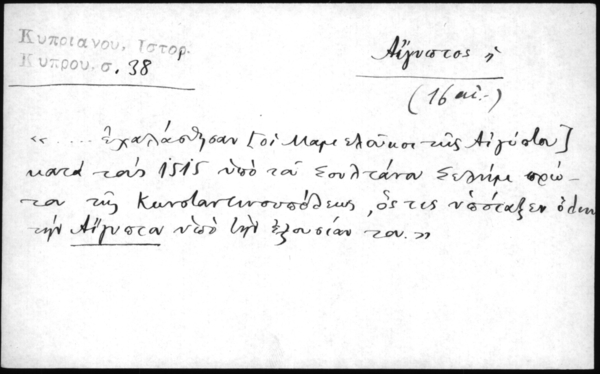 Κυπριανου, Ιστορ.
Κυπρου. σ. 38
Αἴγυπτος ἡ
(16 αἰ.-)
« .... ἐχαλάσθησαν [οἱ Μαμελοῦκοι τῆς Αἰγύπτου]
κατὰ τοὺς 1515 ὑπὸ τοῦ Σουλτάνου Σελήμ πρώ-
του τῆς Κωνσταντινουπόλεως, ὅστις ὑπόταξεν ὅλην
τὴν Αἴγυπτον ὑπὸ τὴν ἐξουσίαν του.»